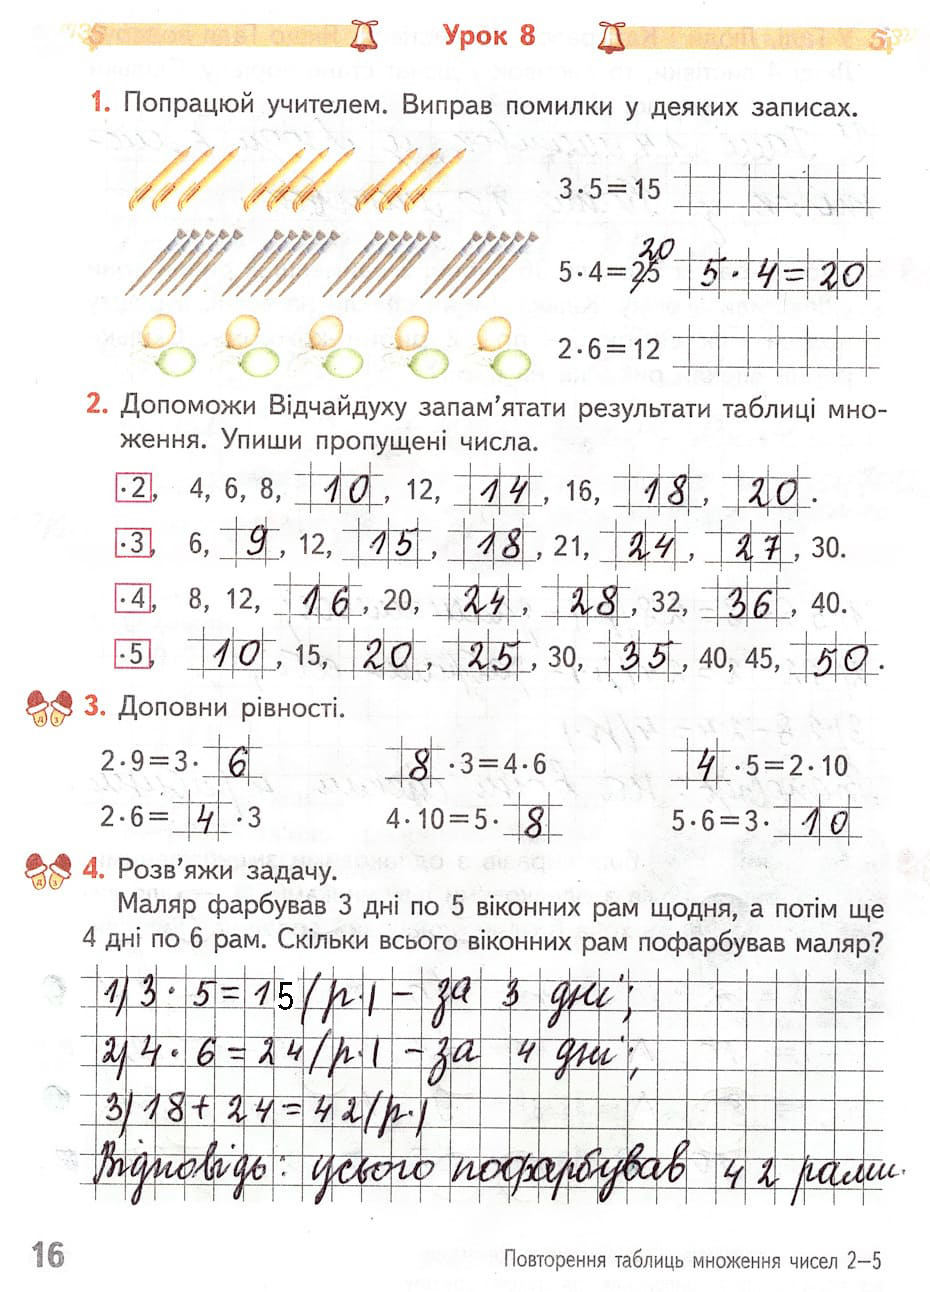 Урок 8
1. Попрацюй учителем. Виправ помилки у деяких записах.
3·5=15
5·4=25 20 5·4=20
2·6=12
2. Допоможи Відчайдуху запам’ятати результати таблиці мно-
ження. Упиши пропущені числа.
·2, 4, 6, 8, 10, 12, 14, 16, 18, 20.
·3, 6, 9, 12, 15, 18, 21, 24, 27, 30.
·4, 8, 12, 16, 20, 24, 28, 32, 36, 40.
·5, 10, 15, 20, 25, 30, 35 40, 45, 50.
3. Доповни рівності.
2·9=3· 6 8 ·3=4·6 4 ·5=2·10
2·6= 4 ·3 4·10=5· 8 5·6=3· 10
4. Розв’яжи задачу.
Маляр фарбував 3 дні по 5 віконних рам щодня, а потім ще
4 дні по 6 рам. Скільки всього віконних рам пофарбував маляр?
1) 3·5=15(р.) – за 3 дні;
2) 4·6=24(р.) – за 4 дні;
3) 18+24=42(р.)
Відповідь: усього пофарбував 42 рами.
16
Повторення таблиць множення чисел 2–5